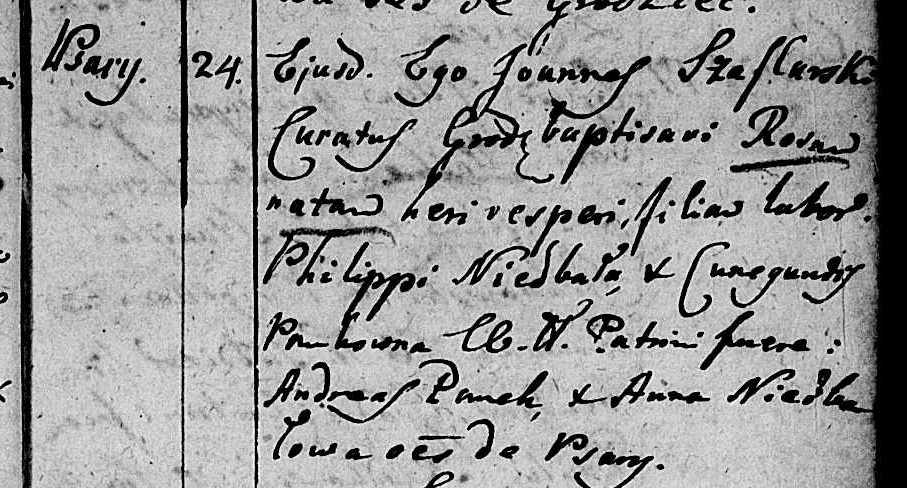 de Grodziec.
Psary. 24. Ejusd. Ego Joannes Szaflarski
Curatus Grodz baptisavi Rosam
natam heri vesperi, filiam labor.
Philippi Niedbała & Cunegundis
Pawkowna CC. LL. Patrini fuere:
Andreas Pawek, & Anna Niedba
łowa oēs de Psary.